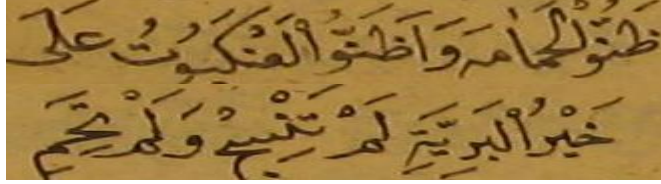 ظَنُّوْالْحَمَامَہَ وَاَظَنُّوْا الْعَنْكَبُوْتُ عَلَی
خَيْرُ الْبَرِيَّةِ لَمْ تَنْسِجْ وَلَمْ تَحُمِ